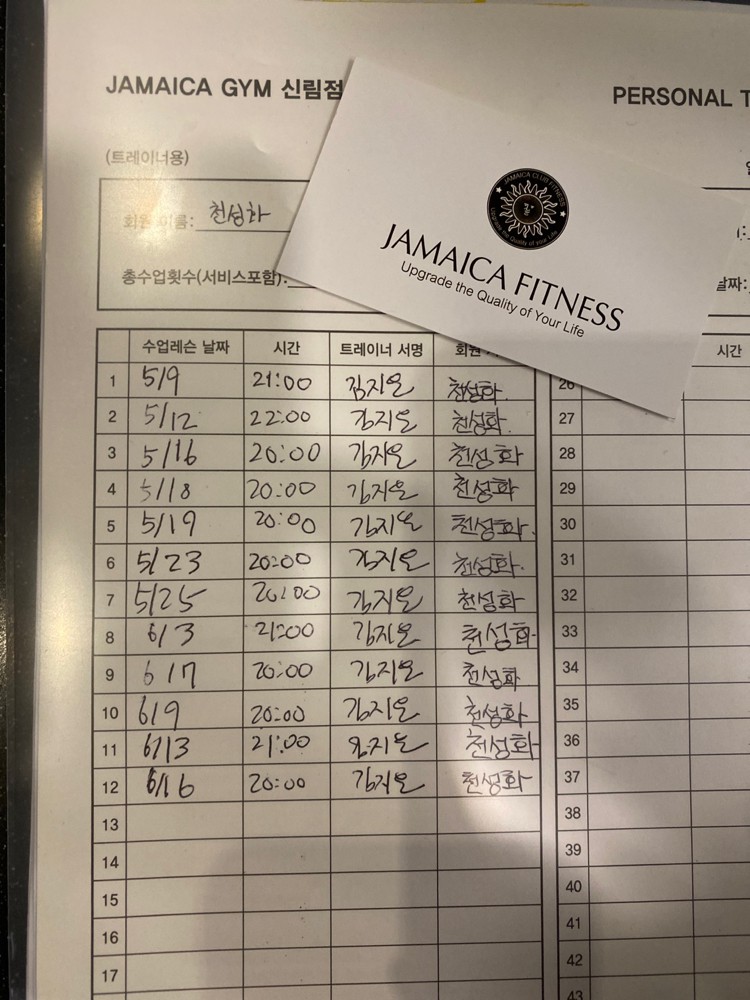 JAMAICA GYM 신림점
PERSONAL T
(트레이너용)
회원 이름: 천성화
총수업횟수(서비스포함):
날짜:
JAMAICA CLUB FITNESS
Upgrade the Quality of your Life
JAMAICA FITNESS
Upgrade the Quality of Your Life
수업레슨 날짜 시간 트레이너 서명 회원
1 5/9 21:00 김지온 천성화.
2 5/12 22:00 김지온 천성화.
3 5/16 20:00 김지온 천성화
4 5/18 20:00 김지온 천성화
5 5/19 20:00 김지온 천성화.
6 5/23 20:00 김지온 천성화.
7 5/25 20:00 김지온 천성화
8 6/3 21:00 김지온 천성화
9 6/7 20:00 김지온 천성화
10 6/9 20:00 김지온 천성화
11 6/13 21:00 김지온 천성화
12 6/16 20:00 김지온 천성화
13
14
15
16
17
시간
26
27
28
29
30
31
32
33
34
35
36
37
38
39
40
41
42
43